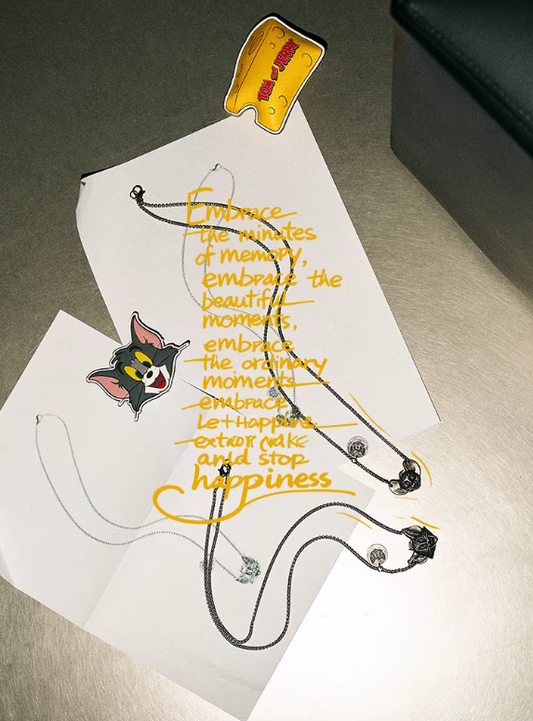 TOM and JERRY
Embrace
the minutes
of memory,
embrace the
beautiful
moments,
embrace
the ordinary
moments
embrace
Let Happine
and stop
happiness